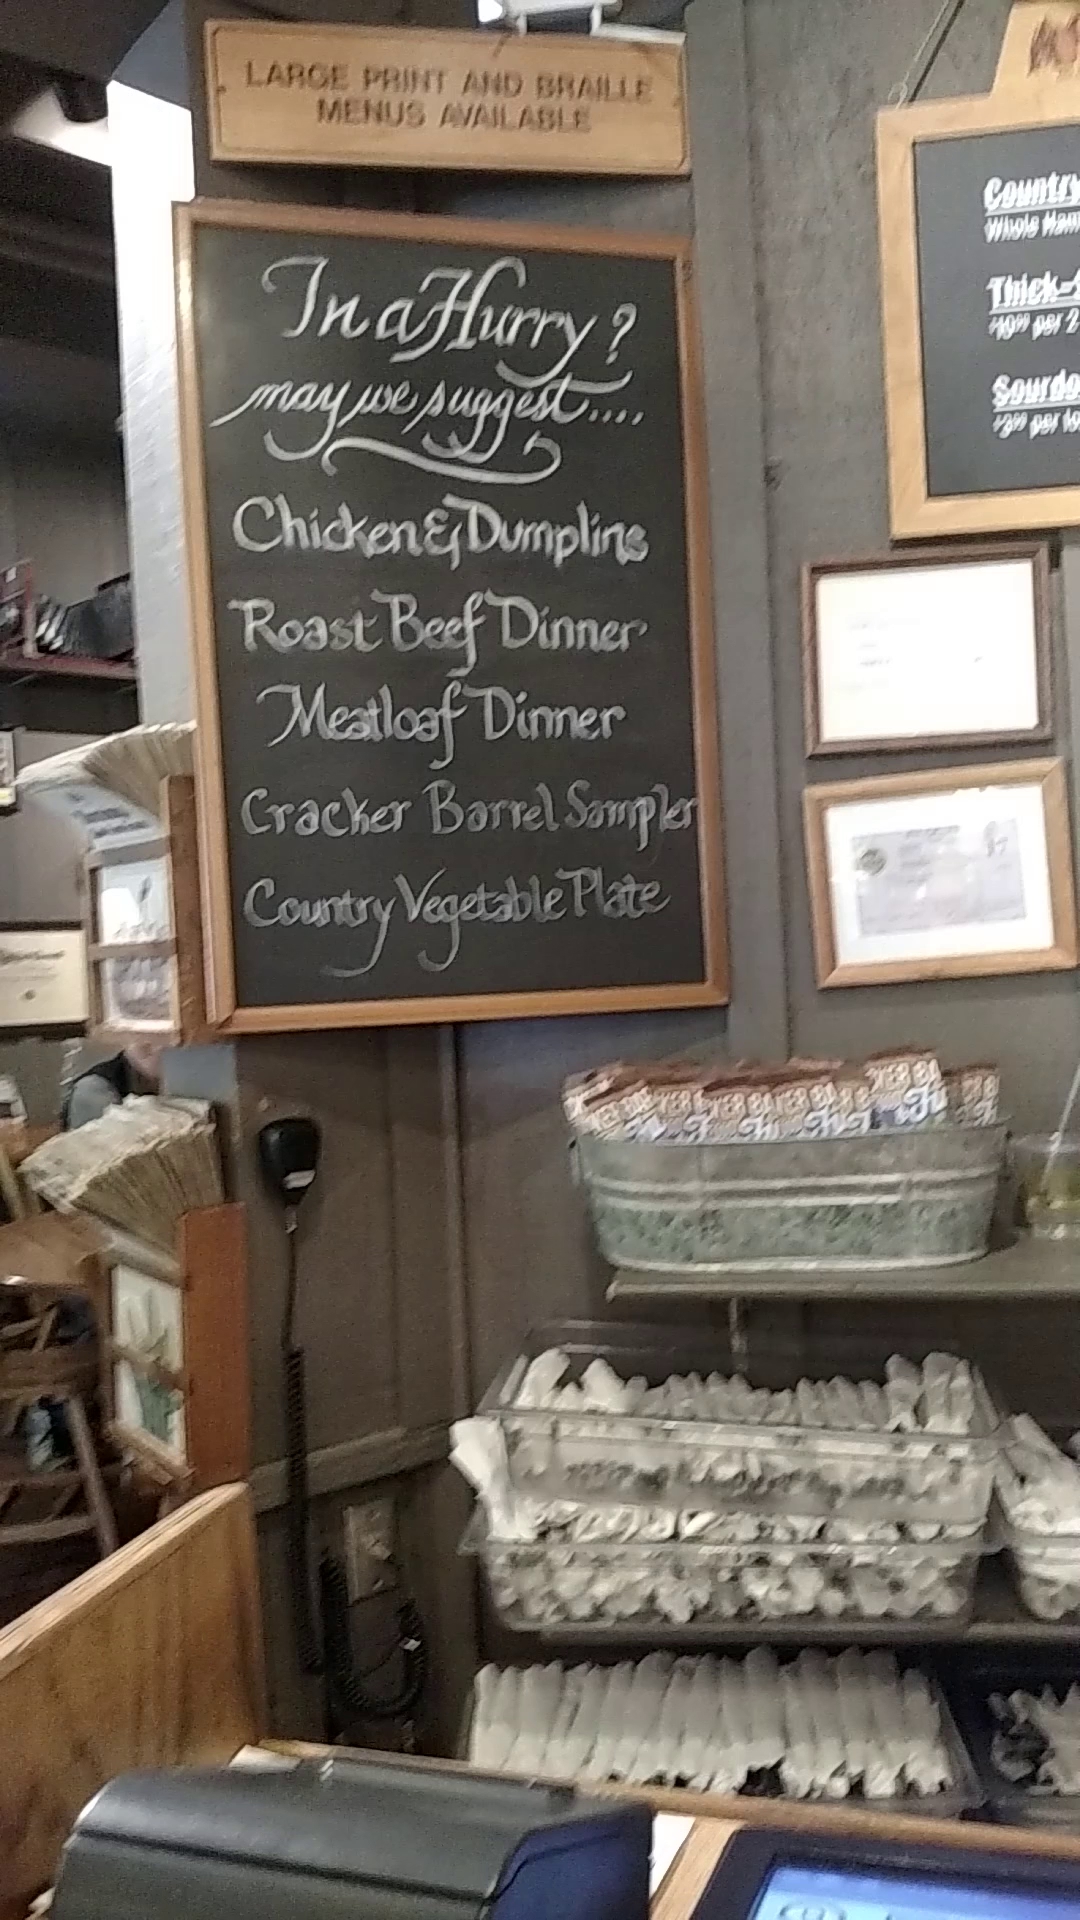 LARGE PRINT AND BRAILLE
MENUS AVAILABLE
In a Hurry?
may we suggest....
Chicken & Dumplins
Roast Beef Dinner
Meatloaf Dinner
Cracker Barrel Sampler
Country Vegetable Plate
Country
Whole Ham
Thick-
per 2
per